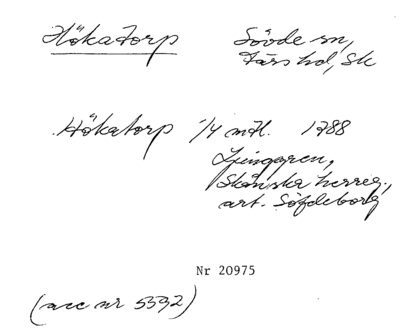 Hökatorp Sövde sn,
Färs hd, Sk
Hökatorp 1/4 mtl. 1788
Ljunggren,
Skånska herreg.,
art. Söfdeborg
Nr 20975
(acc nr 5592)